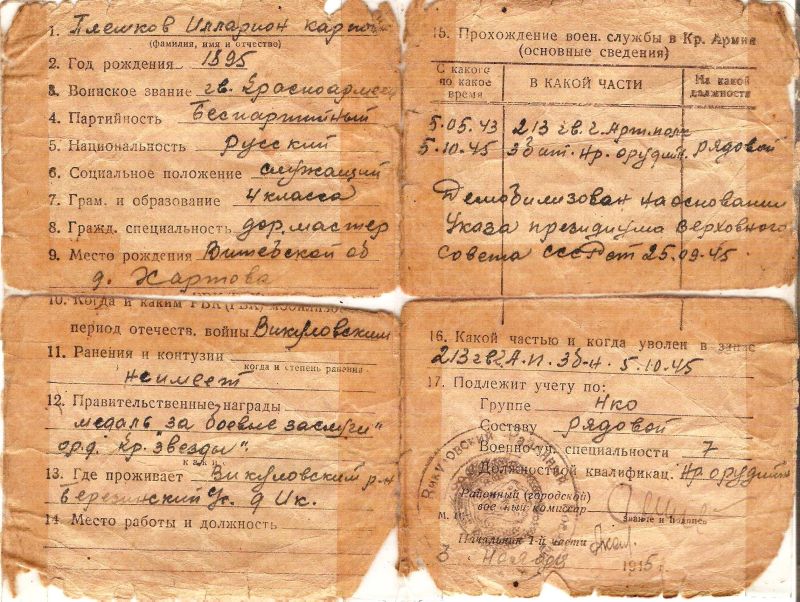 1. Плешков Илларион Карпович
(фамилия, имя и отчество)
2. Год рождения 1895
3. Воинское звание гв. Красноармеец
4. Партийность Беспартийный
5. Национальность русский
6. Социальное положение служащий
7. Грам. и образование 4 класса
8. Гражд. специальность дор. мастер
9. Место рождения Витебской об
д. Хартова
10. Когда и каким РВК (ГВК) мобилизов
период отечеств. войны Викуловским
11. Ранения и контузии
когда и степень ранения
не имеет
12. Правительственные награды
медаль „за боевые заслуги"
орд. „Кр. звезды".
какие
13. Где проживает Викуловский р-н
Березинский д. Ик.
14. Место работы и должность
15. Прохождение воен. службы в Кр. Армии
(основные сведения)
С какого по какое время
В КАКОЙ ЧАСТИ
На какой должности
5.05.43 213 гв. г. Арт. полк
5.10.45 3 бат. Нр. орудийн. рядовой
Демобилизован на основании
Указа президиума Верховного
Совета СССР от 25.09.45
16. Какой частью и когда уволен в запас
213 гв. г. А. П. 3 б-н. 5.10.45
17. Подлежит учету по:
Группе Нко
Составу рядовой
Военно-уч. специальности 7
Должностной квалификац. Нр. орудийн
Районный (городской)
военный комиссар
звание и подпись
М. П.
Начальник 1-й части
3 ноября 1945 г.
Викуловский районный